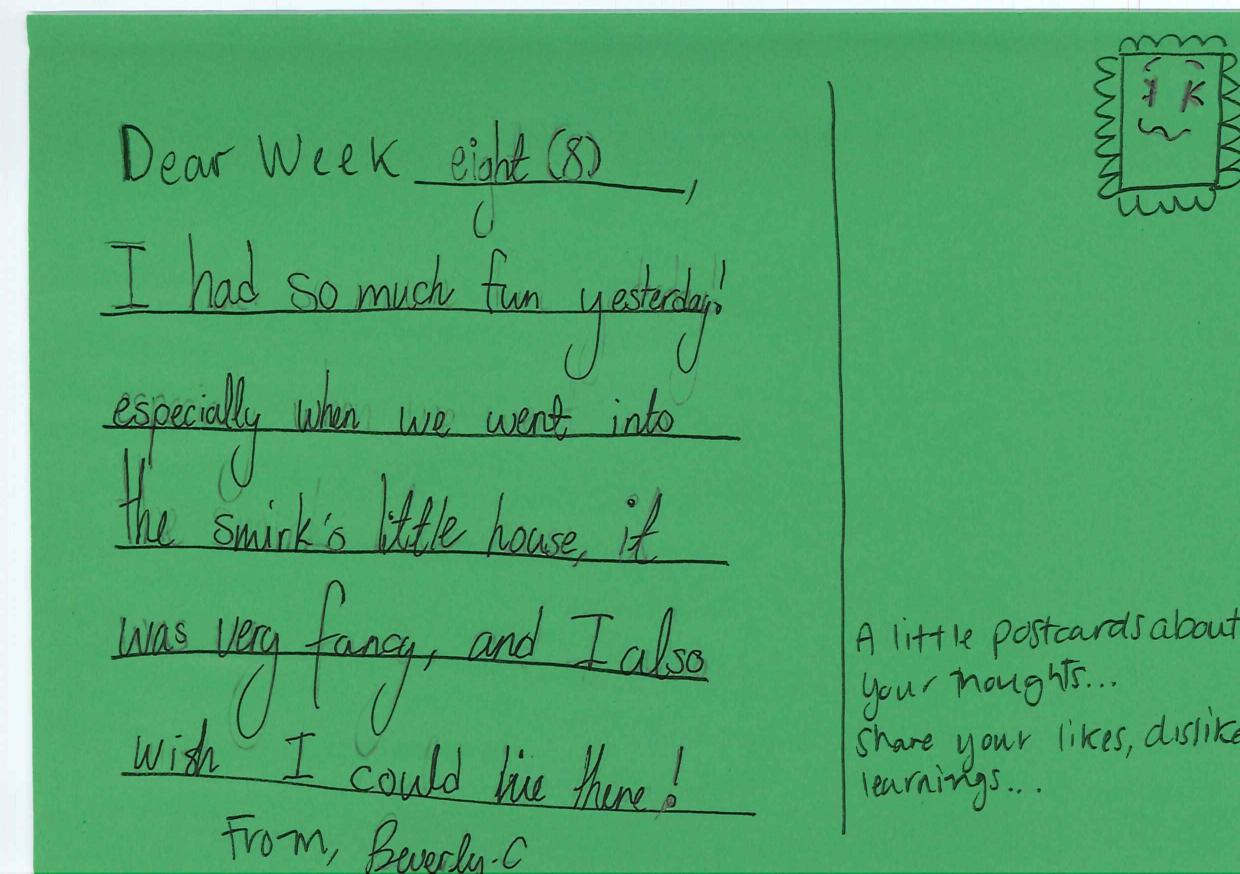 Dear Week eight (8),
I had so much fun yesterday!
especially when we went into
the smirk's little house, it
was very fancy, and I also
wish I could live there!
From, Beverly.C
A little postcards about
your thoughts...
Share your likes, dislike
learnings...